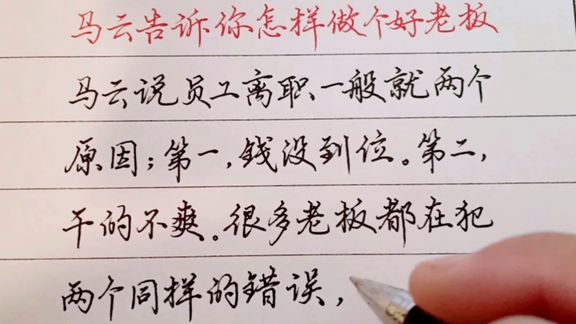 马云告诉你怎样做个好老板
马云说员工离职、一般就两个
原因；第一，钱没到位。第二，
干的不爽。很多老板都在犯
两个同样的错误，